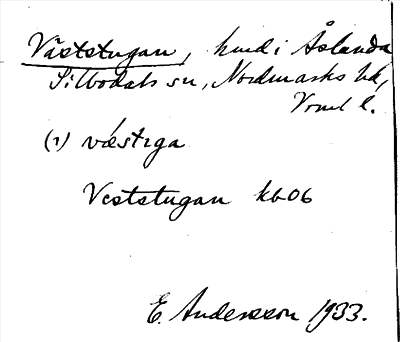 Väststugan, hmd i Åslanda
Silbodals sn, Nordmarks hd,
Vrml l.
(1) væ̀stıga
Veststugan kb 06
E. Andersson 1933.